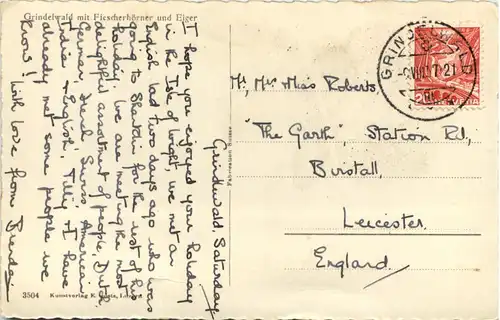 Grindelwald mit Fiescherhörner und Eiger
Grindelwald, Saturday
I hope you enjoyed your holiday
in the Isle of Wight, we met an
English lad two days ago who was
going to Shanklin for the rest of his
holiday. We are meeting the most
delightful assortment of people, Dutch
German, French, Swiss, American
Indian & English. Tilly & I have
already met some people we
know!
With love from Brenda
3504 Kunstverlag E.
GRINDELWALD
Mr, Mrs Miss Roberts,
"The Garth", Station Rd,
Birstall,
Leicester.
England.